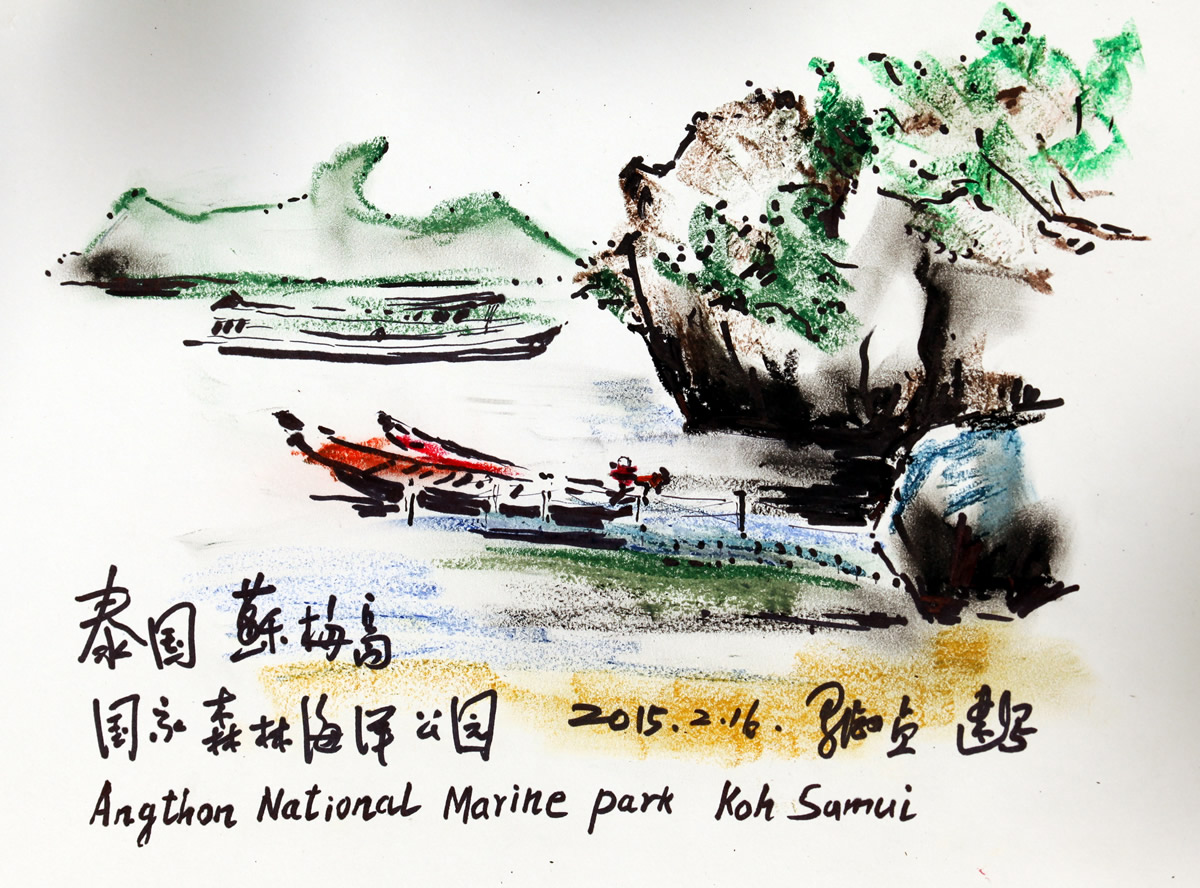 泰国 蘇梅島
国家森林海洋公园 2015.2.16.
Angthon National Marine park Koh Samui